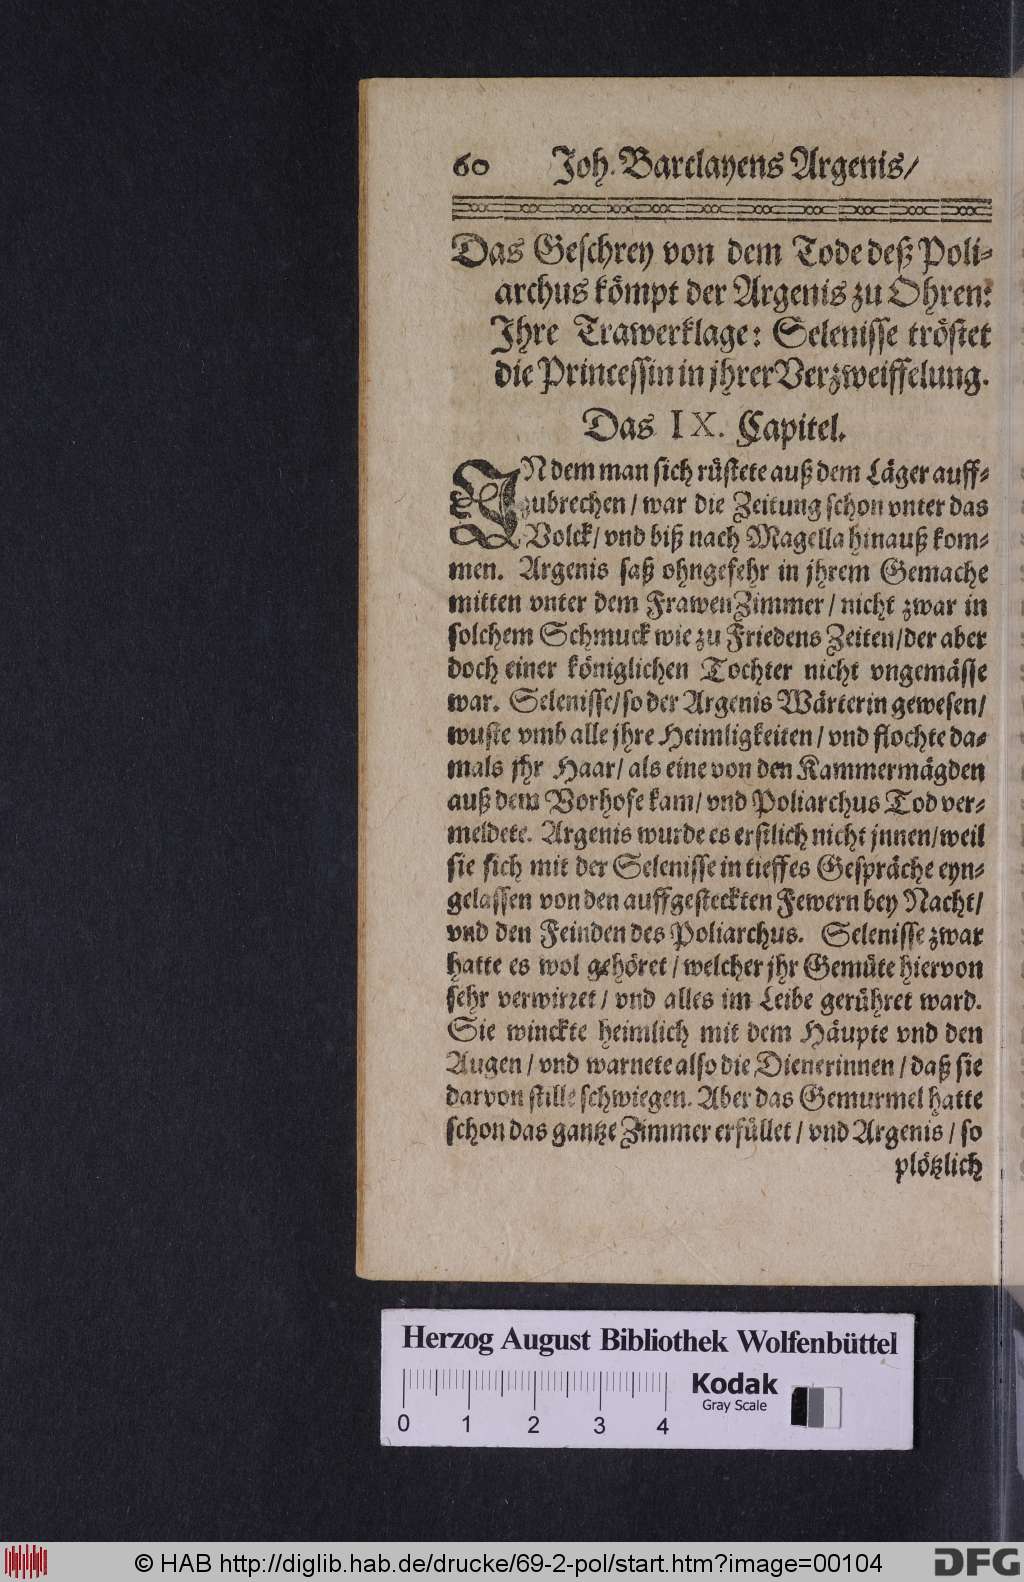 60 Joh. Barclayens Argenis/
Das Geschrey von dem Tode deß Poli-
archus kömpt der Argenis zu Ohren:
Ihre Trawerklage: Selenisse tröstet
die Princessin in jhrer Verzweiffelung.
Das IX. Capitel.
INdem man sich rüstete auß dem Läger auff-
zubrechen / war die Zeitung schon vnter das
Volck / vnd biß nach Magella hinauß kom-
men. Argenis saß ohngefehr in jhrem Gemache
mitten vnter dem FrawenZimmer / nicht zwar in
solchem Schmuck wie zu Friedens Zeiten / der aber
doch einer königlichen Tochter nicht vngemässe
war. Selenisse / so der Argenis Wärterin gewesen /
wuste vmb alle jhre Heimligkeiten / vnd flochte da-
mals jhr Haar / als eine von den Kammermägden
auß dem Vorhofe kam / vnd Poliarchus Tod ver-
meldete. Argenis wurde es erstlich nicht jnnen / weil
sie sich mit der Selenisse in tieffes Gespräche eyn-
gelassen von den auffgesteckten Fewern bey Nacht /
vnd den Feinden des Poliarchus. Selenisse zwar
hatte es wol gehöret / welcher jhr Gemüte hiervon
sehr verwirret / vnd alles im Leibe gerühret ward.
Sie winckte heimlich mit dem Häupte vnd den
Augen / vnd warnete also die Dienerinnen / daß sie
darvon stille schwiegen. Aber das Gemurmel hatte
schon das gantze Zimmer erfüllet / vnd Argenis / so
plötzlich
Herzog August Bibliothek Wolfenbüttel
0 1 2 3 4
Kodak
Gray Scale
© HAB http://diglib.hab.de/drucke/69-2-pol/start.htm?image=00104
DFG